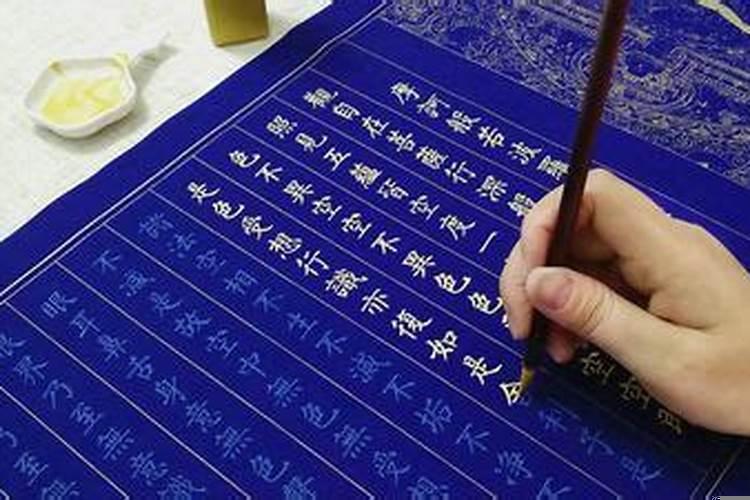 摩訶般若波羅
觀自在菩薩行深般
照見五蘊皆空度一
色不異空空不異色色空空即
是色受想行識亦復如是舍利子是
諸法空相不生不滅不垢不淨
不減是故空中無色無受想
眼耳鼻舌身意無色
眼界乃至無意識
乃至無